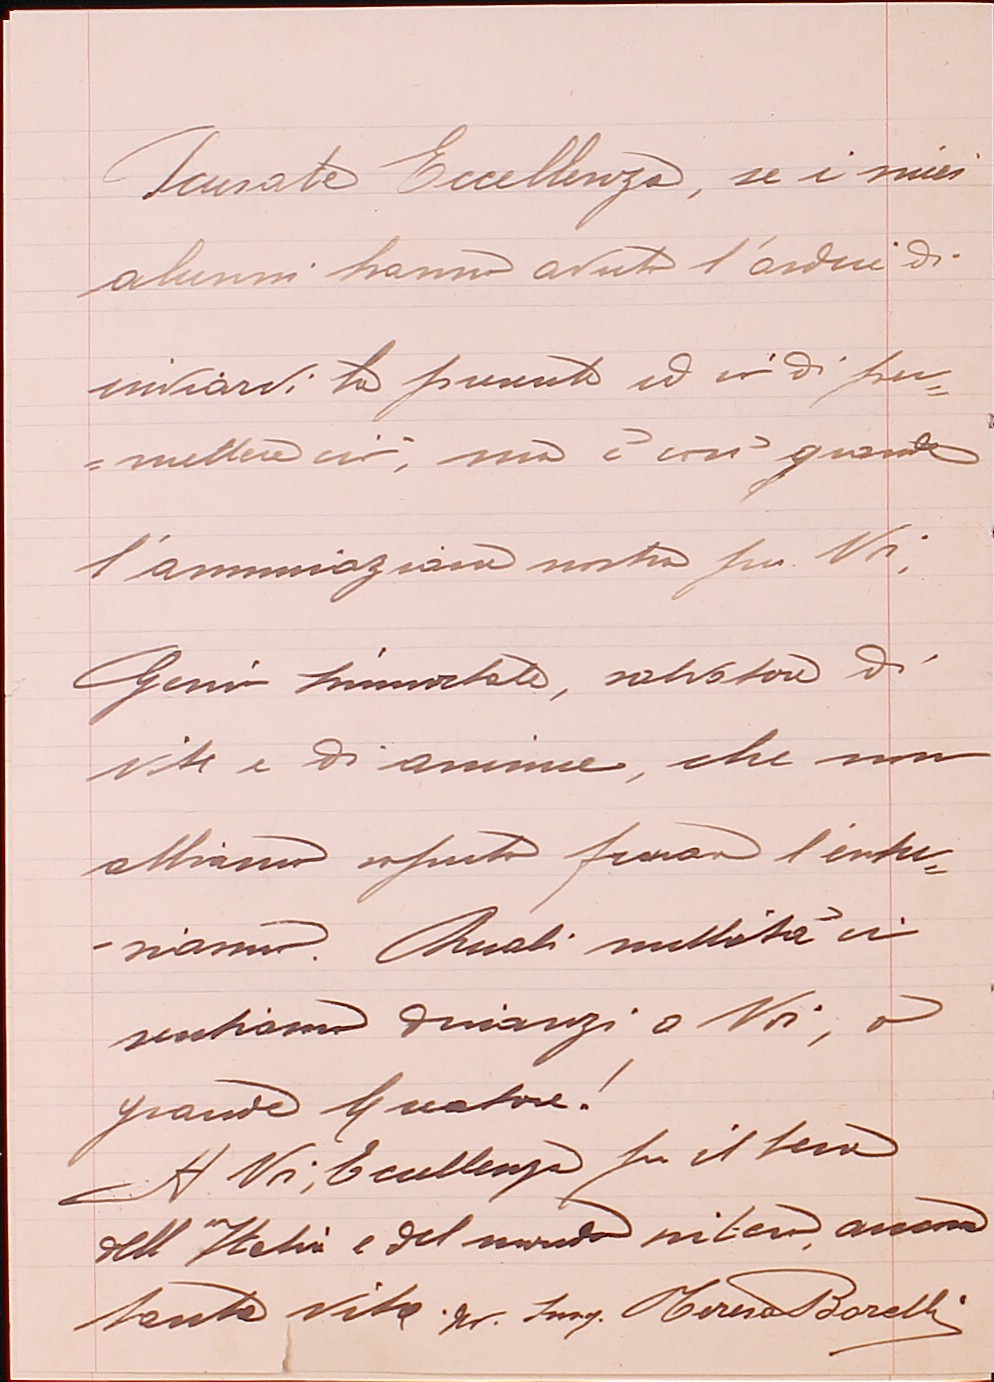 Scusate Eccellenza, se i miei
alunni hanno avuto l'ardire di
inviarvi la presente ed io di per=
=mettere ciò, ma è così grande
l'ammirazione nostra per Voi,
Genio immortale, salvatore di
vite e di anime, che non
abbiamo saputo frenare l'entu=
-siasmo. Quali nullità ci
sentiamo dinanzi a Voi, o
grande Creatore!
A Voi, Eccellenza per il bene
dell'Italia e del mondo intero, ancora
tanta vita. Teresa Borelli